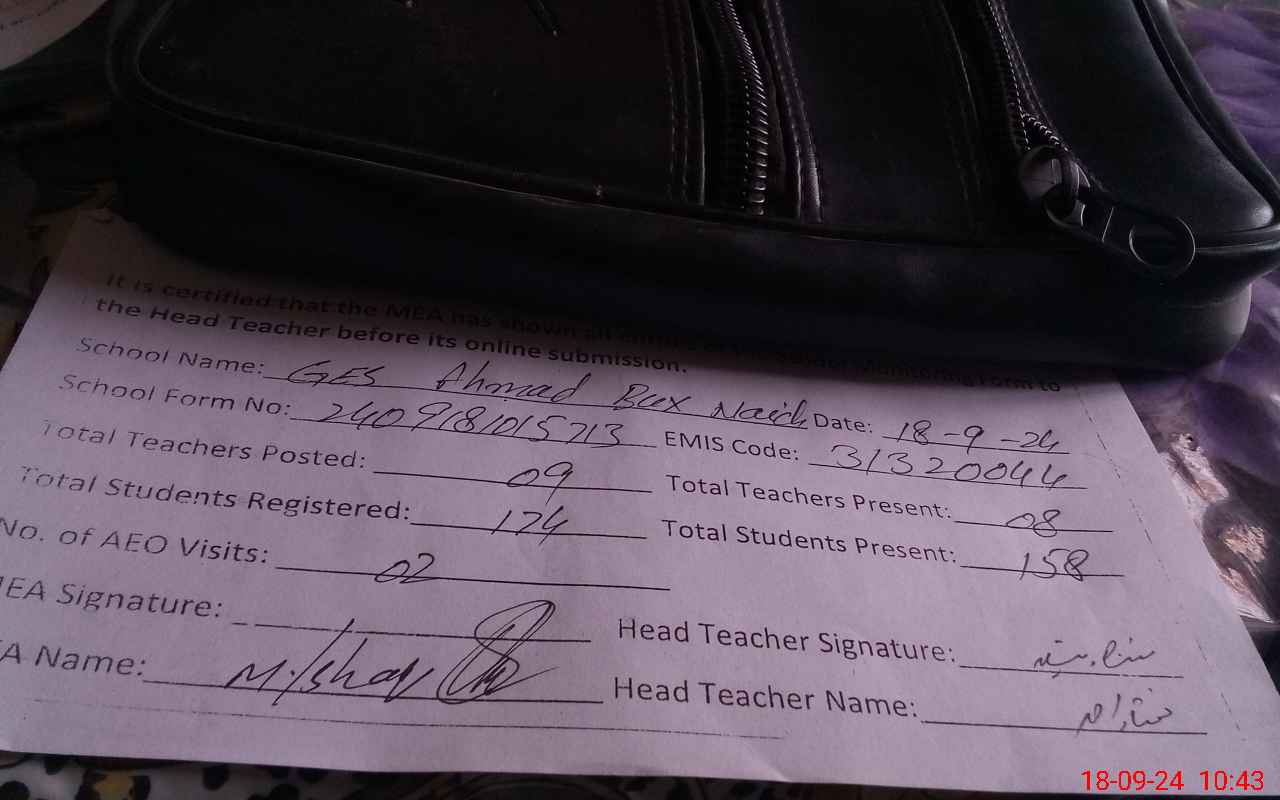 It is certified that the MEA has shown all
the Head Teacher before its online submission. Monitoring Form to
School Name: GES Ahmad Bux Naich Date: 18-9-24
School Form No: 2409181015713 EMIS Code: 31320044
Total Teachers Posted: 09 Total Teachers Present: 08
Total Students Registered: 174 Total Students Present: 158
No. of AEO Visits: 02
MEA Signature: Head Teacher Signature:
A Name: M. Ishaq Head Teacher Name:
18-09-24 10:43